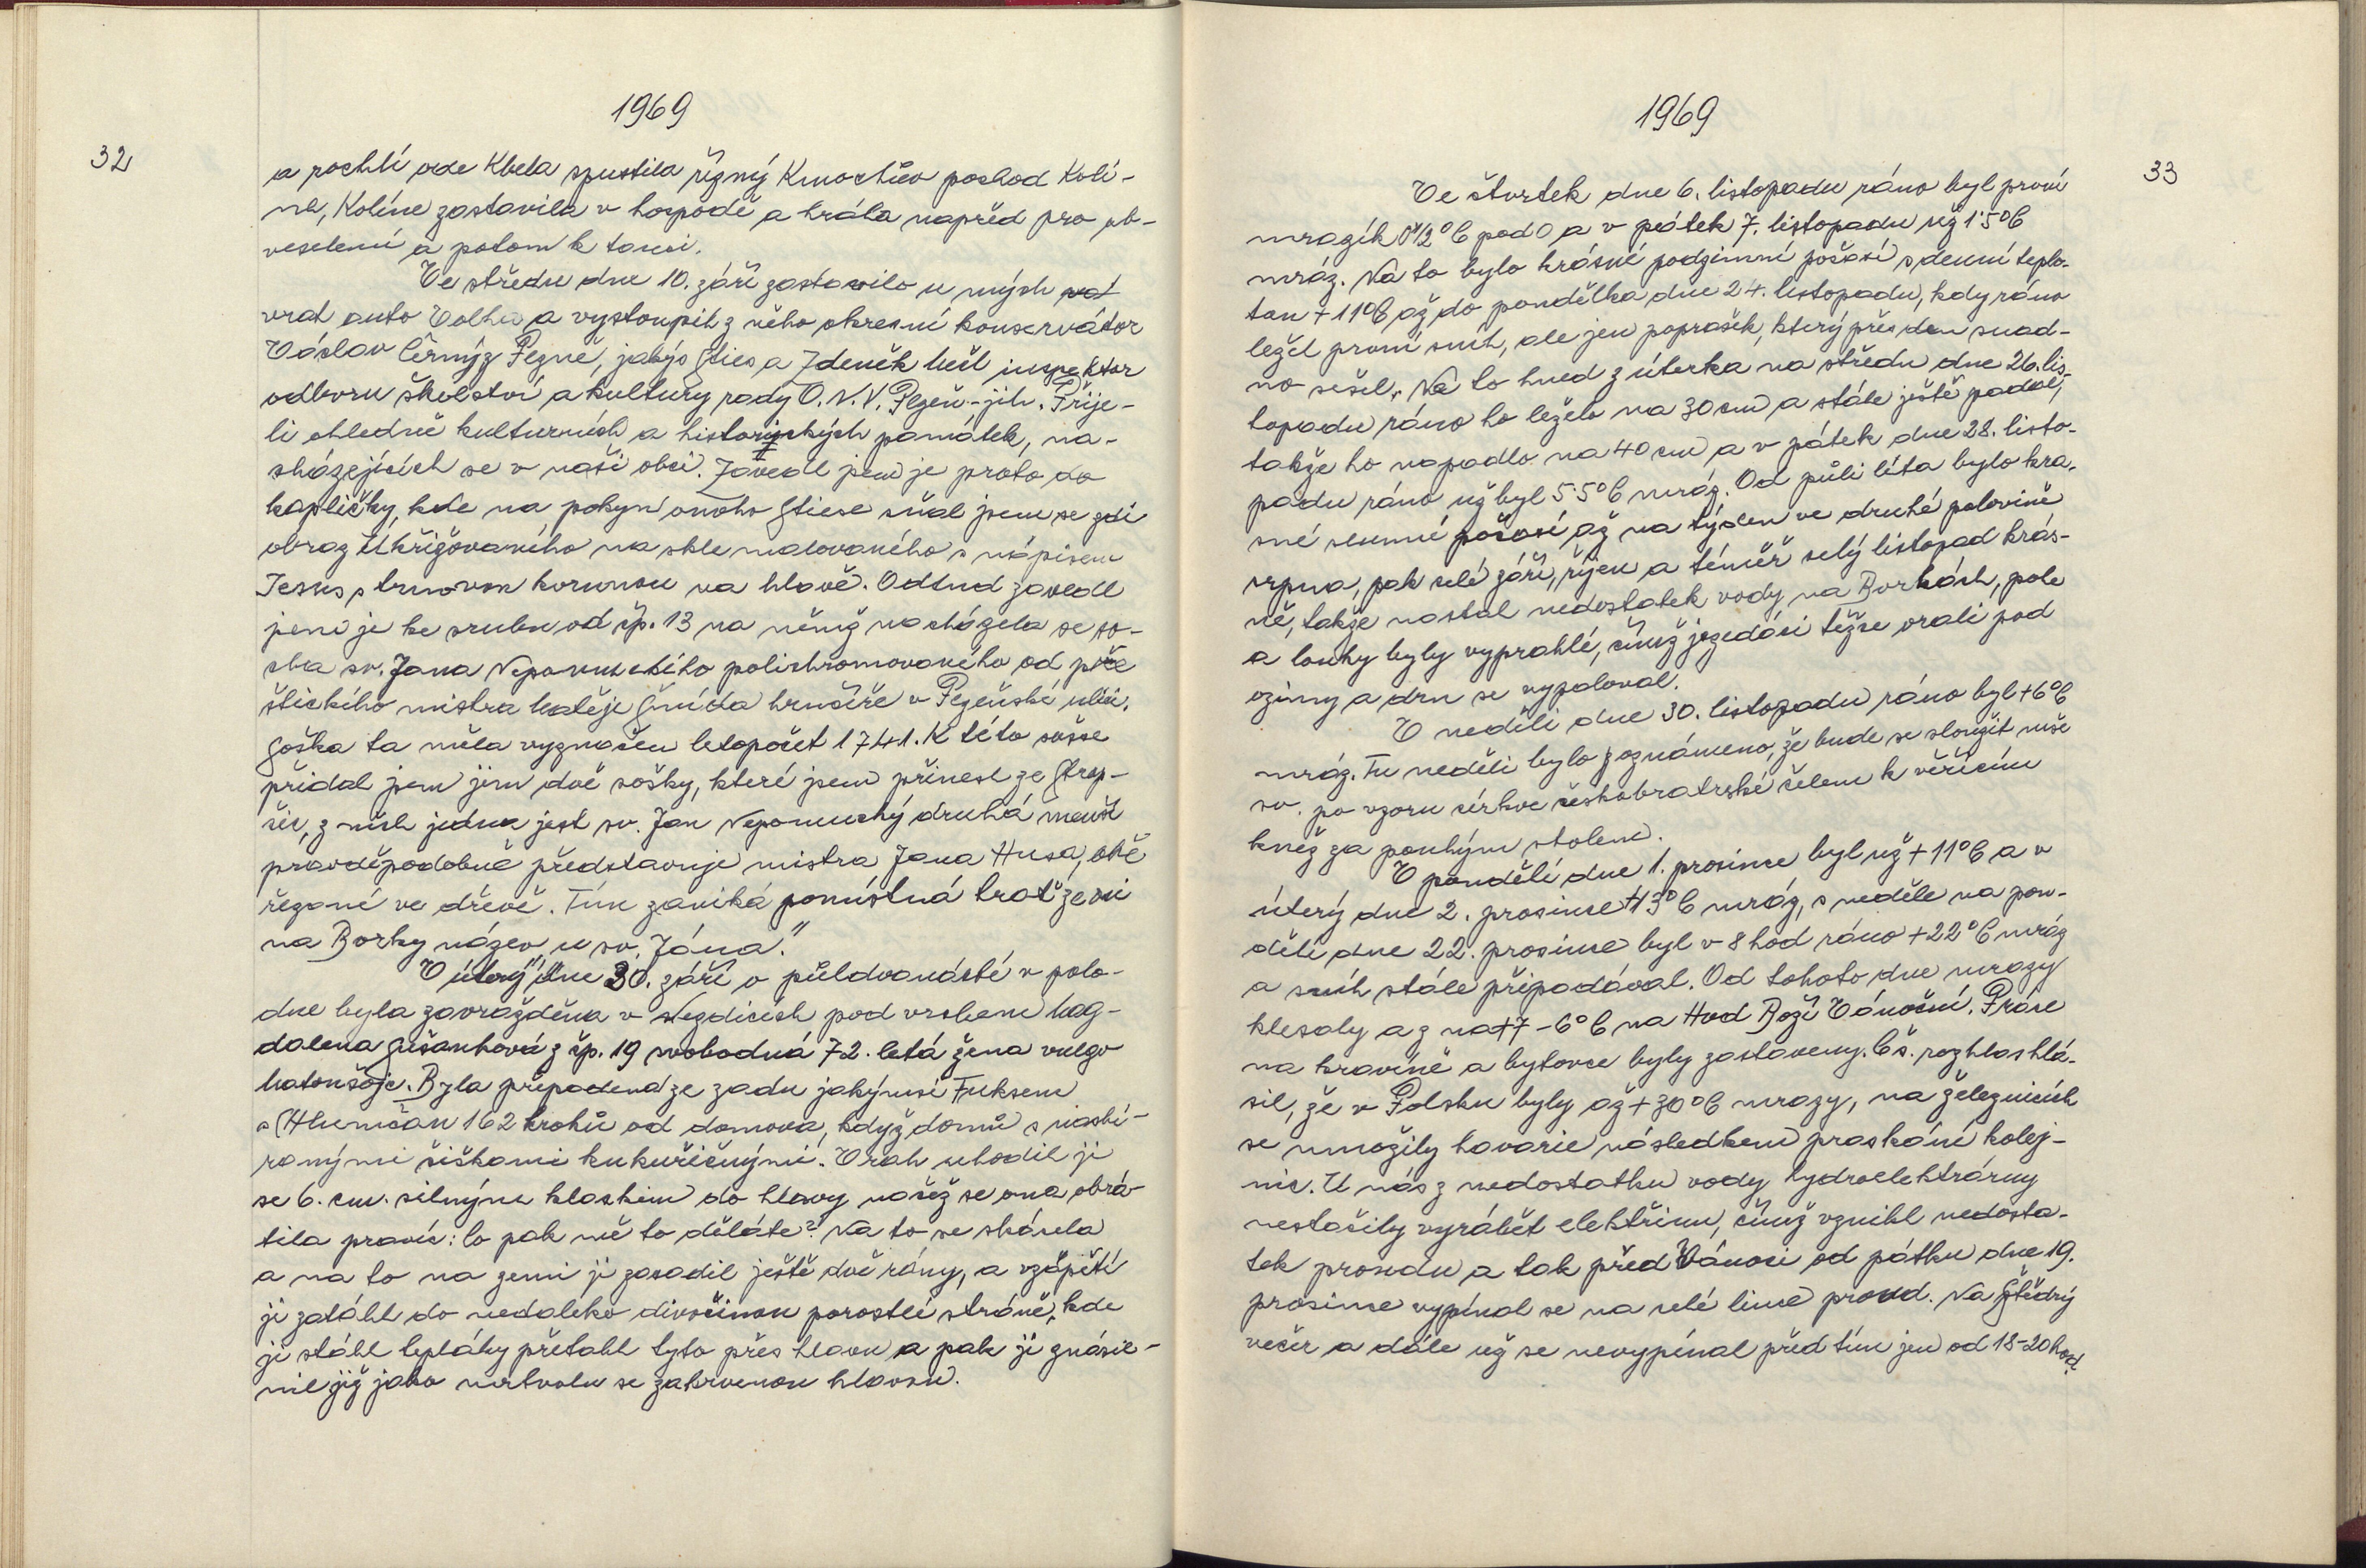 1969
32
a rochlí ode Kbela spustila řízný Kmochův pochod Kolí-
ne, Kolíne zastavila v hospodě a hrála napřed pro ob-
veselení a potom k tanci.
Ve středu dne 10. září zastavilo u mých
vrat auto Volha a vystoupili z něho okresní konservátor
Václav Černý z Plzně, jakýs Sties a Zdeněk Mešl inspektor
odboru školství a kultury rady O.N.V. Plzeň-jih. Přije-
li ohledně kulturních a historických památek, na-
cházejících se v naší obci. Zavedl jsem je proto do
kapličky, kde na pokyn onoho Stiese sňal jsem se zdi
obraz Ukřižovaného na skle malovaného s nápisem
Jesus s trnovou korunou na hlavě. Odtud zavedl
jsem je ke srubu od čp. 13 na němž nacházela se so-
cha sv. Jana Nepomuckého polichromovaného od pře
štického mistra Matěje Šmída hrnčíře v Plzeňské ulici.
Soška ta měla vyznačen letopočet 1741. K této sošce
přidal jsem jim dvě sošky, které jsem přinesl ze Strop-
čic, z nich jedna jest sv. Jan Nepomucký druhá menší
pravděpodobně představuje mistra Jana Husa, obě
řezané ve dřevě. Tím zaniká pomístná trať ze vsi
na Borky název „u sv. Jána."
V úterý dne 30. září o půldvanácté v polo-
dne byla zavražděna v Nezdicích pod vrchem Mag-
dalena Sušanková z čp. 19 svobodná 72. letá žena vulgo
Matoušoje. Byla přepadena ze zadu jakýmsi Fuksem
z Hlumčan 162 kroků od domova, když domů s nasbí-
ranými šiškami kukuřičnými. Vrah uhodil ji
se 6. cm. silným klackem do hlavy načež se ona obrá-
tila pravíc: Co pak mě to děláte? Na to se skácela
a na to na zemi jí zasadil ještě dvě rány, a vzápětí
ji zatáhl do nedaleko divočinou porostlé stráně, kde
jí stáhl tepláky přetáhl tyto přes hlavu a pak ji znásil-
nil již jako mrtvolu se zakrvenou hlavou.
1969
33
Ve čtvrtek dne 6. listopadu ráno byl první
mrazík 0°1/2°C pod 0 a v pátek 7. listopadu už 1.5°C
mráz. Na to bylo krásné podzimní počasí s denní teplo-
tou + 11°C až do pondělka dne 24. listopadu, kdy ráno
ležel první sníh, ale jen poprašek, který přes den snad-
no sešel. Na to hned z úterka na středu dne 26. lis-
topadu ráno ho leželo na 30 cm a stále ještě padal,
takže ho napadlo na 40 cm a v pátek dne 28. listo-
padu ráno už byl 5.5°C mráz. Od půli léta bylo krá-
sné slunné počasí až na týden ve druhé polovině
srpna, pak celé září, říjen a téměř celý listopad krás-
ně, takže nastal nedostatek vody na Borkách, pole
a louky byly vyprahlé, čímž jezedáci těžce orali pod
ozimy a drn se vypaloval.
V neděli dne 30. listopadu ráno byl +6°C
mráz. Tu neděli bylo zoznámeno, že bude se sloužit mše
sv. po vzoru církve českobratrské čelem k věřícím
kněz za pouhým stolem.
V pondělí dne 1. prosince byl už + 11°C a v
úterý dne 2. prosince +13°C mráz, s neděle na pon-
dělí dne 22. prosince byl v 8 hod ráno +22°C mráz
a sníh stále připadával. Od tohoto dne mrazy
klesaly a z na +7 - 6°C na Hod Boží Vánoční. Práce
na kravíně a bytovce byly zastaveny. Čs. rozhlas hlá-
sil, že v Polsku byly až +30°C mrazy, na železnicích
se množily havarie následkem praskání kolej-
nic. U nás z nedostatku vody hydroelektrárny
nestačily vyrábět elektřinu, čímž vznikl nedosta-
tek proudu a tak před Vánoci od pátku dne 19.
prosince vypínal se na celé lince proud. Na Štědrý
večer a dále už se nevypínal před tím jen od 18-20 hod.